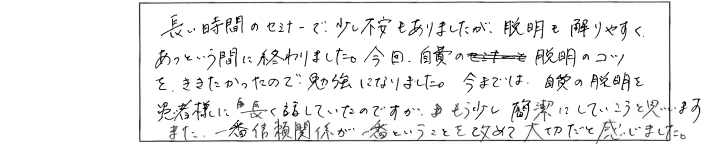 長い時間のセミナーで、少し不安もありましたが、説明も解りやすく、
あっという間に終わりました。今回、自費の説明のコツ
を、ききたかったので、勉強になりました。今までは、自費の説明を
患者様に長く話していたのですが、もう少し簡潔にしていこうと思います
また、一番信頼関係が一番ということを改めて大切だと感じました。